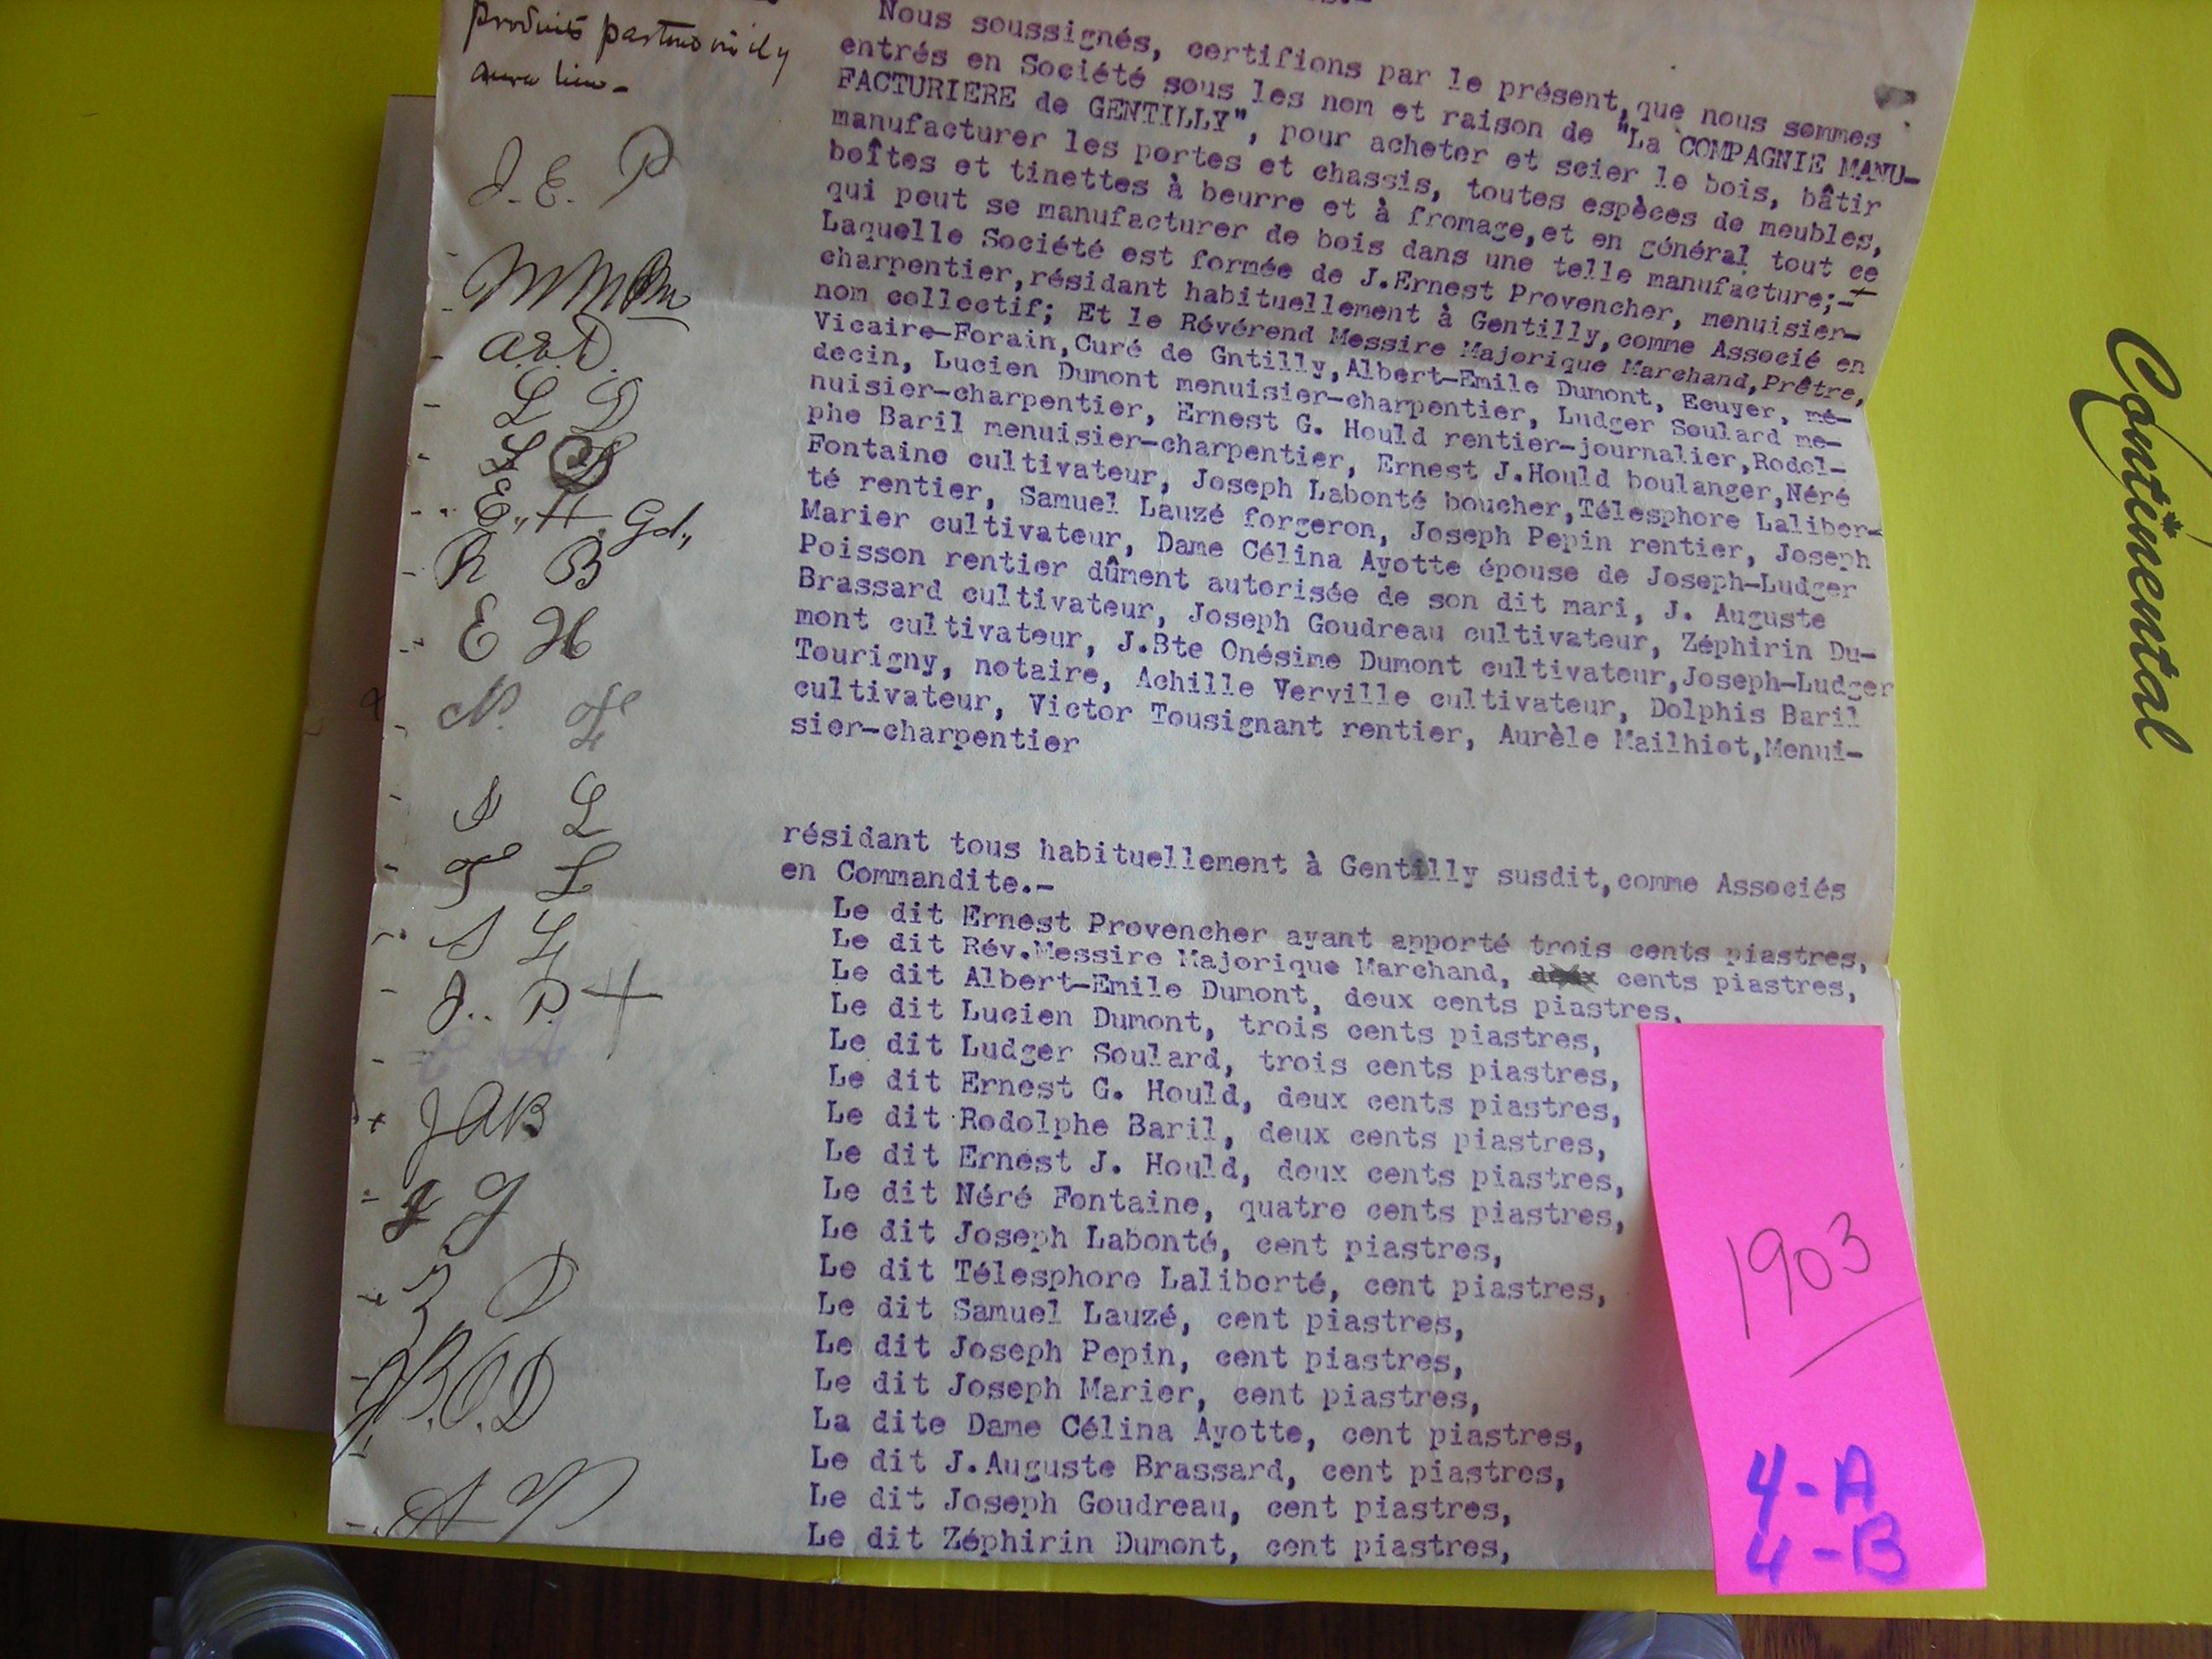 produits partout où il y
aura lieu -
Nous soussignés, certifions par le présent,que nous sommes
entrés en Société sous les nom et raison de "La COMPAGNIE MANU-
FACTURIERE de GENTILLY", pour acheter et scier le bois, bâtir
manufacturer les portes et chassis, toutes espèces de meubles,
boîtes et tinettes à beurre et à fromage,et en général tout ce
qui peut se manufacturer de bois dans une telle manufacture;-
Laquelle Société est formée de J.Ernest Provencher, menuisier-
charpentier,résidant habituellement à Gentilly,comme Associé en
nom collectif; Et le Révérend Messire Majorique Marchand,Prêtre,
Vicaire-Forain,Curé de Gntilly,Albert-Emile Dumont, Ecuyer, mé-
decin, Lucien Dumont menuisier-charpentier, Ludger Soulard me-
nuisier-charpentier, Ernest G. Hould rentier-journalier,Rodol-
phe Baril menuisier-charpentier, Ernest J.Hould boulanger,Néré
Fontaine cultivateur, Joseph Labonté boucher,Télesphore Laliber-
té rentier, Samuel Lauzé forgeron, Joseph Pepin rentier, Joseph
Marier cultivateur, Dame Célina Ayotte épouse de Joseph-Ludger
Poisson rentier dûment autorisée de son dit mari, J. Auguste
Brassard cultivateur, Joseph Goudreau cultivateur, Zéphirin Du-
mont cultivateur, J.Bte Onésime Dumont cultivateur,Joseph-Ludger
Tourigny, notaire, Achille Verville cultivateur, Dolphis Baril
cultivateur, Victor Tousignant rentier, Aurèle Mailhiot,Menui-
sier-charpentier
résidant tous habituellement à Gentilly susdit,comme Associés
en Commandite.-
Le dit Ernest Provencher ayant apporté trois cents piastres,
Le dit Rév.Messire Majorique Marchand, deux cents piastres,
Le dit Albert-Emile Dumont, deux cents piastres,
Le dit Lucien Dumont, trois cents piastres,
Le dit Ludger Soulard, trois cents piastres,
Le dit Ernest G. Hould, deux cents piastres,
Le dit Rodolphe Baril, deux cents piastres,
Le dit Ernest J. Hould, deux cents piastres,
Le dit Néré Fontaine, quatre cents piastres,
Le dit Joseph Labonté, cent piastres,
Le dit Télesphore Laliberté, cent piastres,
Le dit Samuel Lauzé, cent piastres,
Le dit Joseph Pepin, cent piastres,
Le dit Joseph Marier, cent piastres,
La dite Dame Célina Ayotte, cent piastres,
Le dit J.Auguste Brassard, cent piastres,
Le dit Joseph Goudreau, cent piastres,
Le dit Zéphirin Dumont, cent piastres,
J. E. P
A.E.D.
L D
L S
E. H. Gd.
R B
E H
N. F
J L
T L
S L
J. P.
JAB
J G
Z D
J.B.O.D
1903
4-A
4-B
Continental